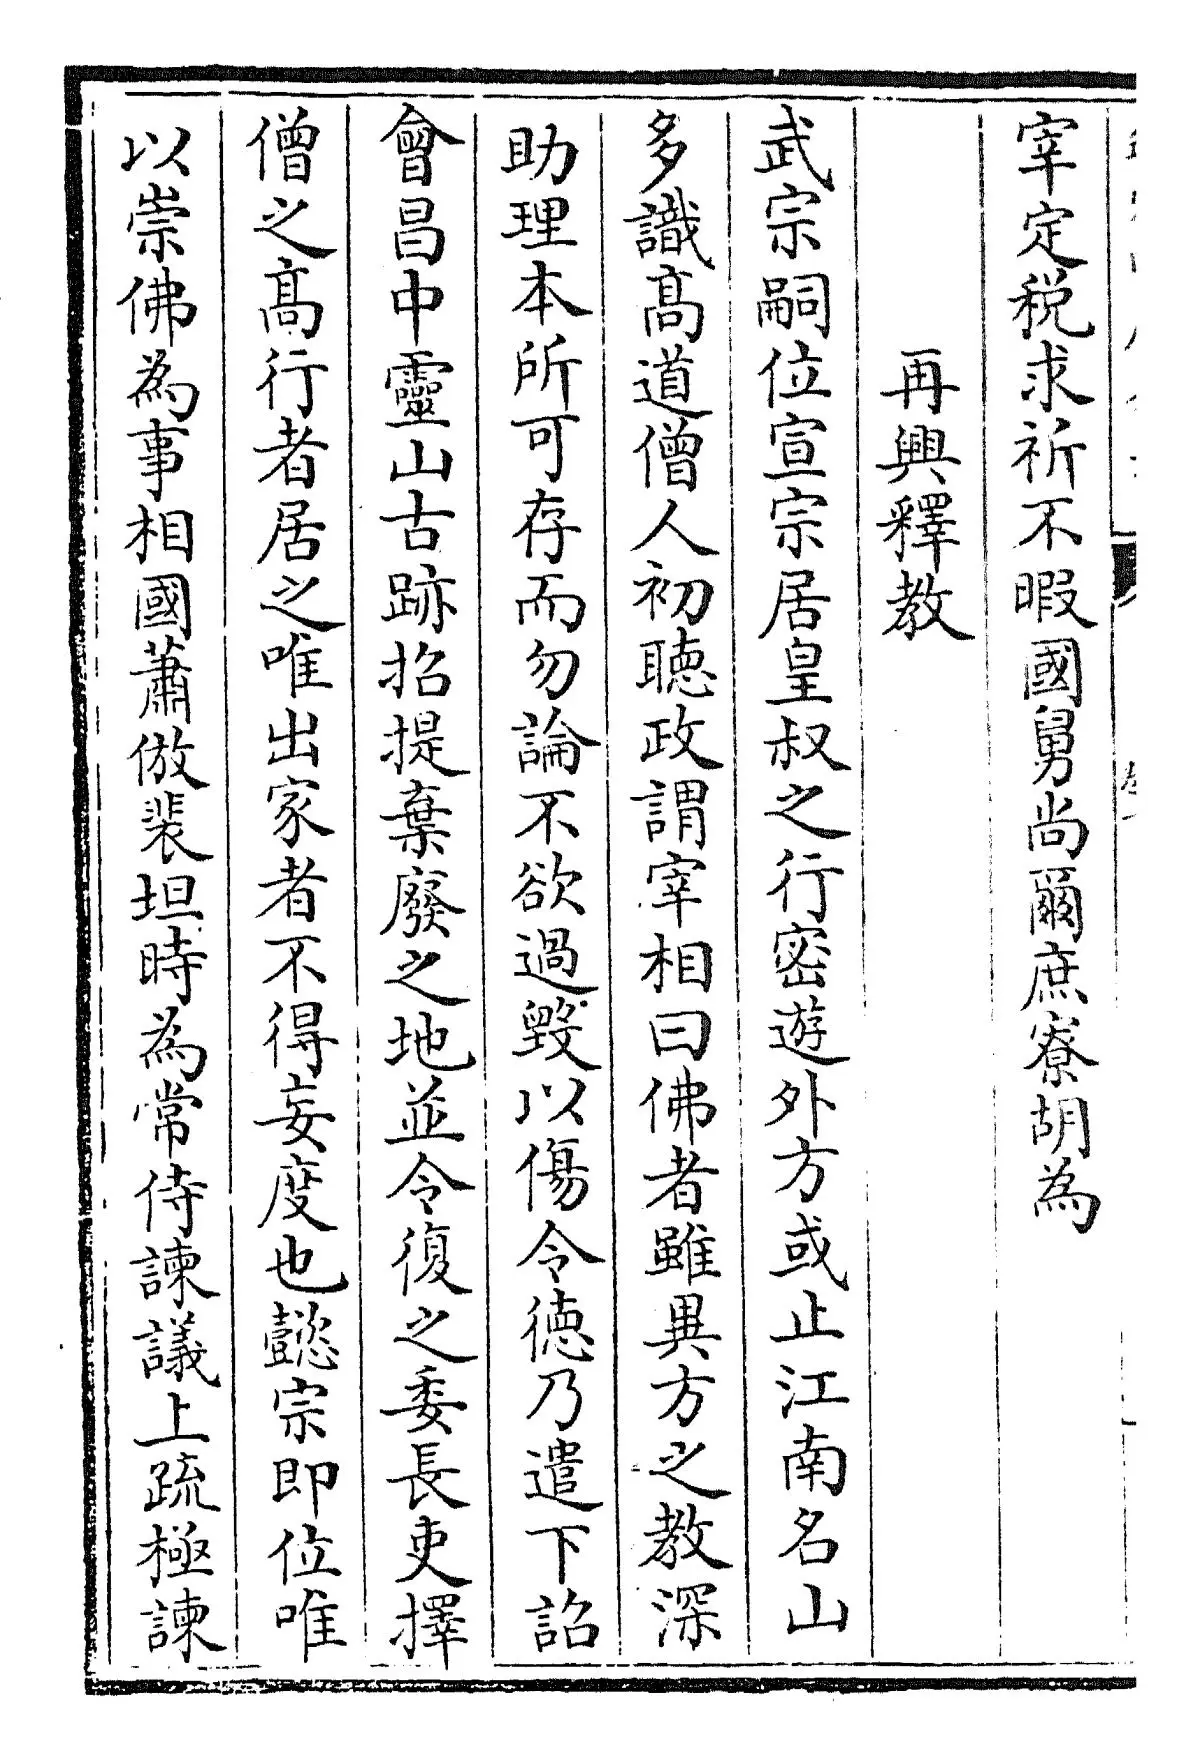 宰定税求祈不暇國舅尚爾庶寮胡為
再興釋教
武宗嗣位宣宗居皇叔之行密遊外方或止江南名山
多識髙道僧人初聴政謂宰相曰佛者雖異方之教深
助理本所可存而勿論不欲過毀以傷令德乃遣下詔
會昌中靈山古跡招提棄廢之地並令復之委長吏擇
僧之髙行者居之唯出家者不得妄度也懿宗即位唯
以崇佛為事相國蕭倣裴坦時為常侍諫議上疏極諫